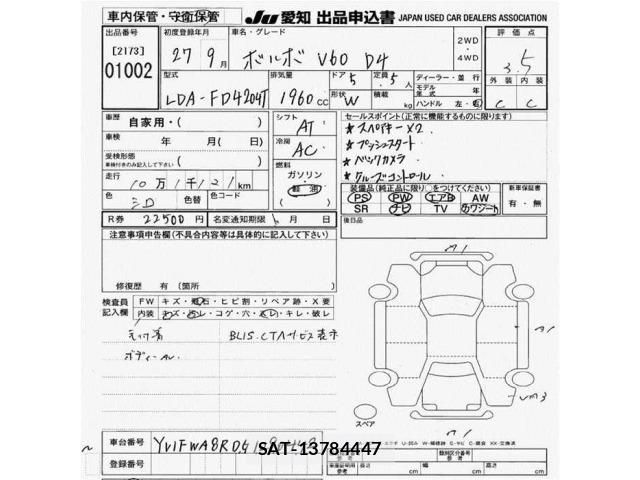 車内保管・守衛保管
JU 愛知 出品申込書 JAPAN USED CAR DEALERS ASSOCIATION
出品番号 初度登録年月 車名・グレード 評価点
[2173] 27年9月 ボルボ V60 D4 2WD・4WD 3.5
01002
型式 排気量 ドア 定員 ディーラー・並行 外装 内装
LDA-FD4204T 1960cc 5 5人 モデル年式 年
形状 W 積載 kg ハンドル 左・右 C C
車歴 自家用・( ) シフト AT セールスポイント(正常に機能するものに限ります)
車検 年 月( 日) 冷房 AC ★スペアキーX2
受検形態 ( ) ★プッシュスタート
車検付きのみ記入して下さい 燃料 ガソリン・軽油 ★バックカメラ
走行 10万1千121km ★クルーズコントロール
色 色替 色コード 装備品(純正品に限り○をつけてください) 新車保証書
PS PW エアB AW 有・無
R券 22500円 名変通知期限 月 日 SR ナビ TV カワシート
注意事項申告欄(不具合内容等は具体的に記入して下さい) 後日品
修復歴 有(箇所 )
検査員記入欄 FW キズ・飛石・ヒビ割・リペア跡・X要
内装 キズ・汚レ・コゲ・穴・スレ・キレ・破レ
BLIS.CTAサービス表示
ボディーAU.
スペア
車台番号 YV1FWA8RDG1
SAT-13784447
登録番号
参考 参考 参考
長さ cm 幅 cm 高さ cm